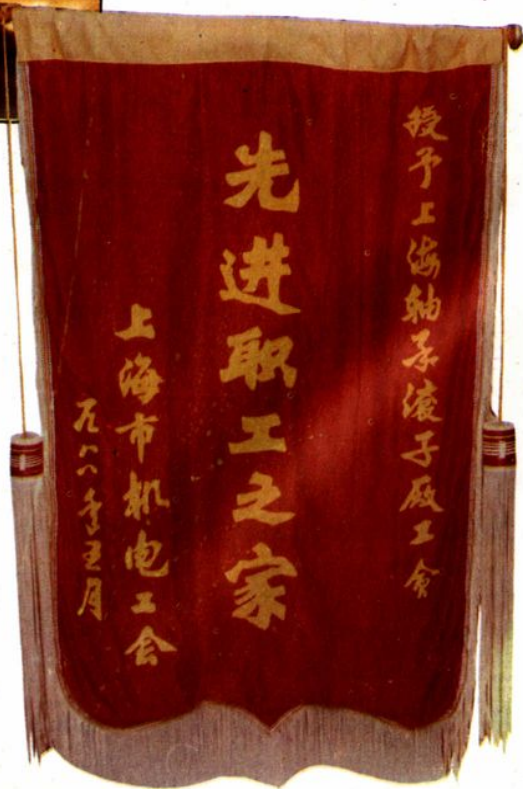 授予上海轴承滚子厰工会
先进职工之家
上海市机电工会
一九八八年五月